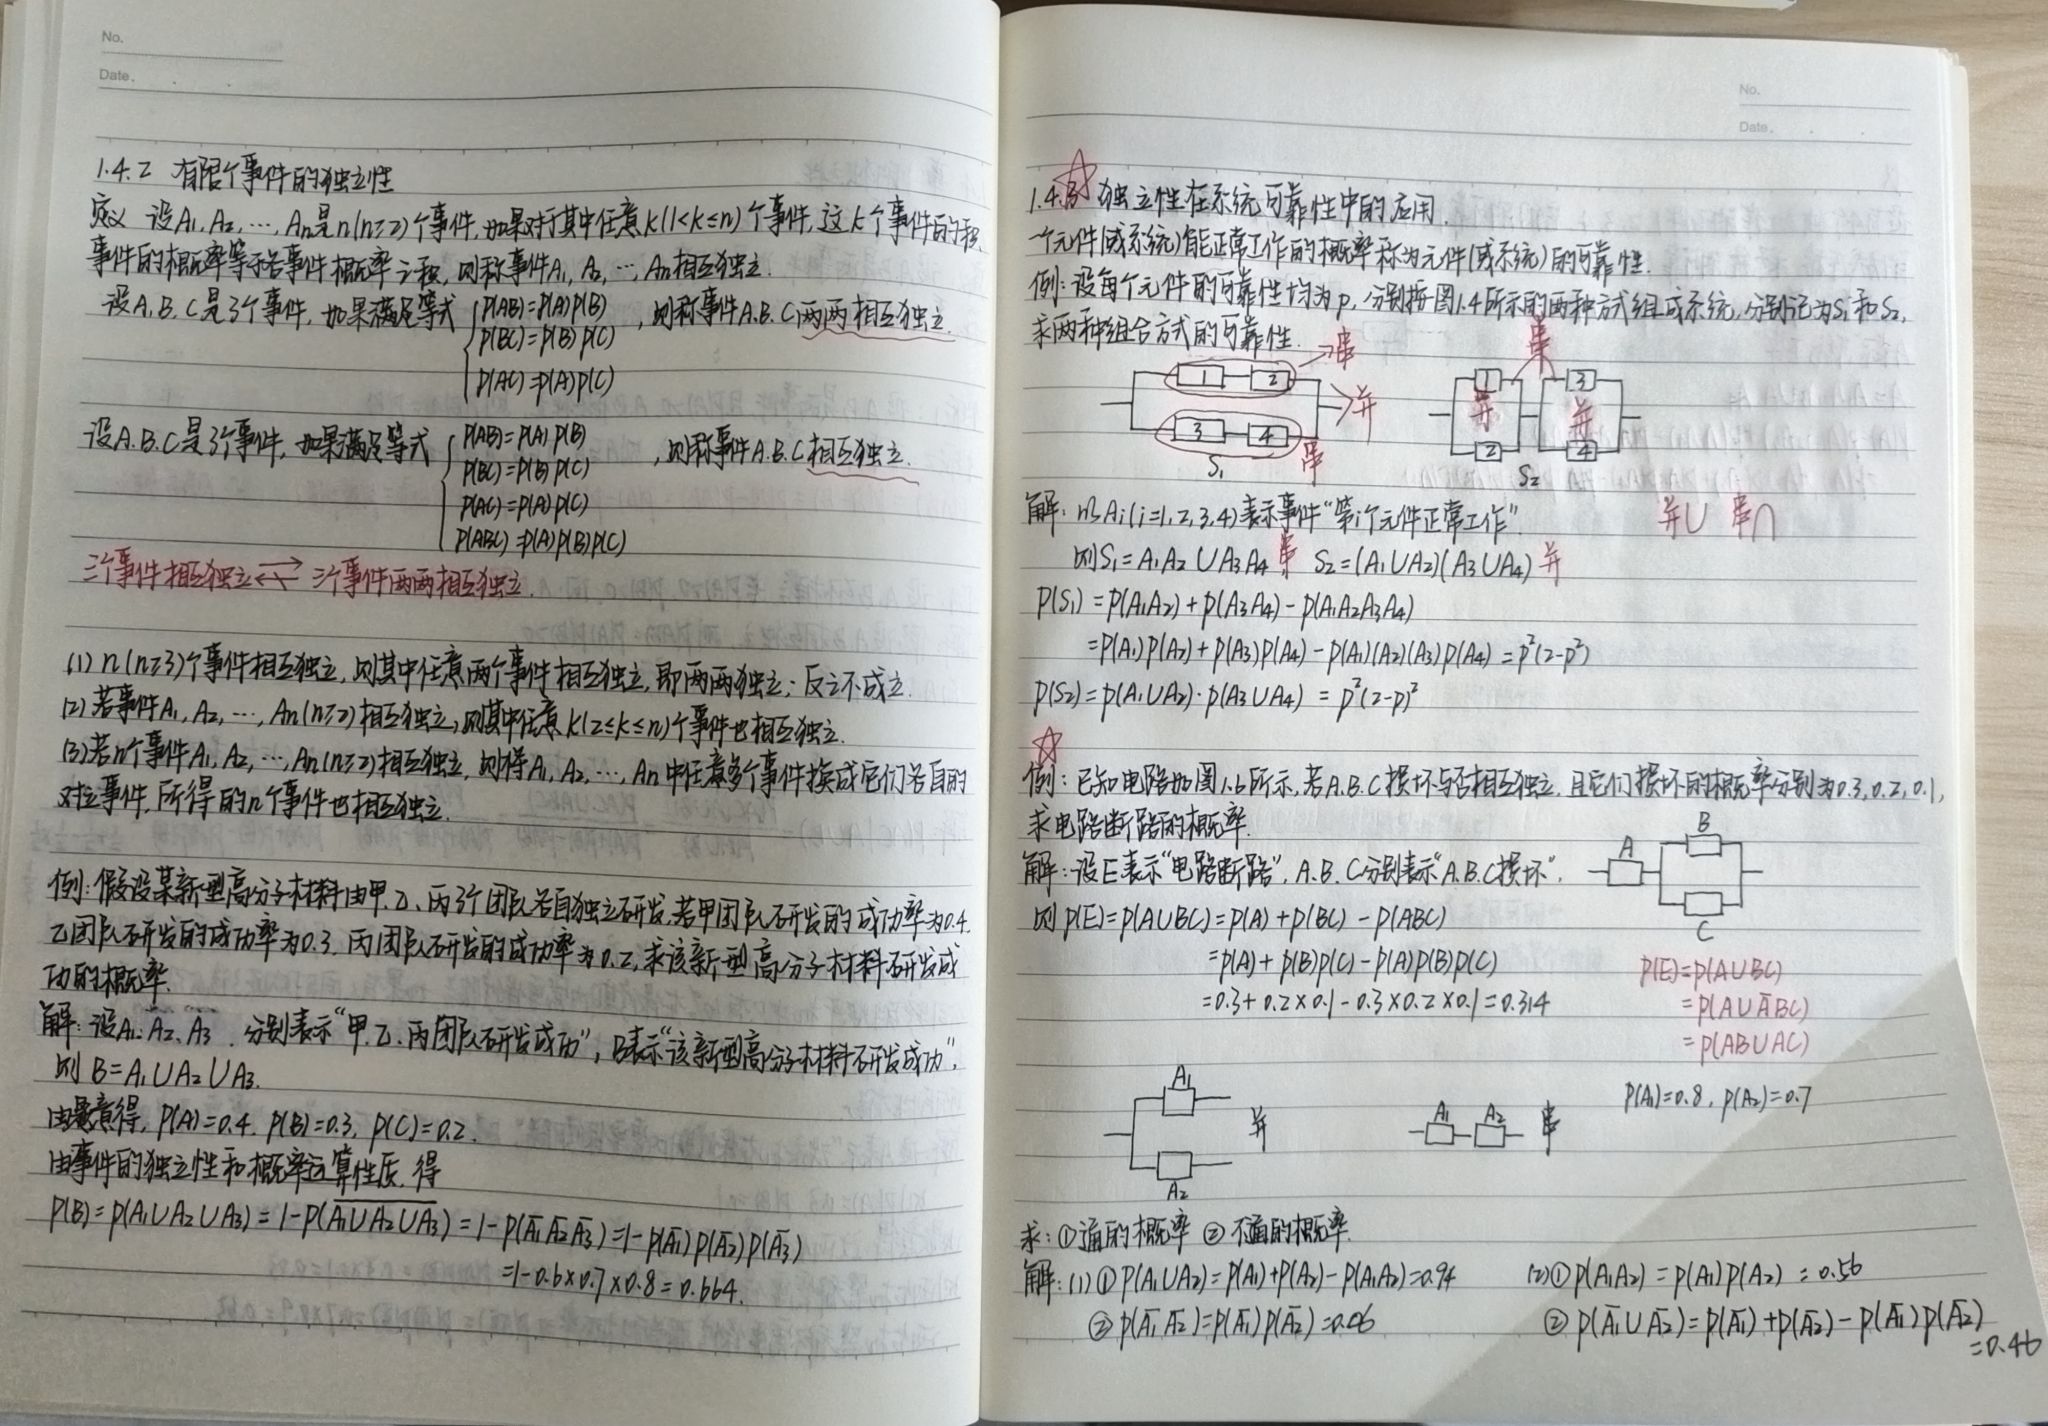 No.
Date.
1.4.2 有限个事件的独立性
定义 设A₁, A₂, …, Aₙ是n(n≥2)个事件,如果对于其中任意k(1<k≤n)个事件,这k个事件的积
事件的概率等于各事件概率之积,则称事件A₁, A₂, …, Aₙ相互独立.
设A.B.C是3个事件,如果满足等式 { P(AB)=P(A)P(B) ,则称事件A.B.C两两相互独立.
P(BC)=P(B)P(C)
P(AC)=P(A)P(C)
设A.B.C是3个事件,如果满足等式 { P(AB)=P(A)P(B) ,则称事件A.B.C相互独立.
P(BC)=P(B)P(C)
P(AC)=P(A)P(C)
P(ABC)=P(A)P(B)P(C)
三个事件相互独立 ⇄ 三个事件两两相互独立.
(1) n(n≥3)个事件相互独立,则其中任意两个事件相互独立,即两两独立;反之不成立.
(2)若事件A₁, A₂, …, Aₙ(n≥2)相互独立,则其中任意k(2≤k≤n)个事件也相互独立.
(3)若n个事件A₁, A₂, …, Aₙ(n≥2)相互独立,则将A₁, A₂, …, Aₙ中任意多个事件换成它们各自的
对立事件,所得的n个事件也相互独立.
例:假设某新型高分子材料由甲.乙.丙3个团队各自独立研发,若甲团队研发的成功率为0.4.
乙团队研发的成功率为0.3.丙团队研发的成功率为0.2,求该新型高分子材料研发成
功的概率.
解:设A₁.A₂.A₃.分别表示“甲.乙.丙团队研发成功”,B表示“该新型高分子材料研发成功”,
则 B=A₁∪A₂∪A₃.
由题意得, P(A)=0.4, P(B)=0.3, P(C)=0.2.
由事件的独立性和概率运算性质,得
P(B)=P(A₁∪A₂∪A₃)=1-P(A̅₁̅∪̅A̅₂̅∪̅A̅₃̅)=1-P(A̅₁A̅₂A̅₃)=1-P(A̅₁)P(A̅₂)P(A̅₃)
=1-0.6×0.7×0.8=0.664.
No.
Date.
1.4.3 独立性在系统可靠性中的应用.
一个元件(或系统)能正常工作的概率称为元件(或系统)的可靠性.
例:设每个元件的可靠性均为p,分别按图1.4所示的两种方式组成系统,分别记为S₁和S₂,
求两种组合方式的可靠性.
串 串
1 2 并 1 3
并 并
3 4 串 2 4
S₁ S₂
解:以Aᵢ(i=1,2,3,4)表示事件“第i个元件正常工作”. 并∪ 串∩
则S₁=A₁A₂∪A₃A₄ 串 S₂=(A₁∪A₂)(A₃∪A₄) 并
P(S₁)=P(A₁A₂)+P(A₃A₄)-P(A₁A₂A₃A₄)
=P(A₁)P(A₂)+P(A₃)P(A₄)-P(A₁)(A₂)(A₃)P(A₄)=p²(2-p²)
P(S₂)=P(A₁∪A₂)·P(A₃∪A₄)=p²(2-p)²
例:已知电路如图1.6所示,若A.B.C损坏与否相互独立,且它们损坏的概率分别为0.3,0.2,0.1,
求电路断路的概率.
解:设E表示“电路断路”,A.B.C分别表示“A.B.C损坏”.
A B C
则 P(E)=P(A∪BC)=P(A)+P(BC)-P(ABC)
=P(A)+P(B)P(C)-P(A)P(B)P(C)
=0.3+0.2×0.1-0.3×0.2×0.1=0.314
P(E)=P(A∪BC)
=P(A∪A̅BC)
=P(AB∪AC)
A₁ 并 A₂
A₁ A₂ 串
P(A₁)=0.8, P(A₂)=0.7
求:①通的概率 ②不通的概率.
解:(1)①P(A₁∪A₂)=P(A₁)+P(A₂)-P(A₁A₂)=0.94 (2)①P(A₁A₂)=P(A₁)P(A₂)=0.56
②P(A̅₁A̅₂)=P(A̅₁)P(A̅₂)=0.06 ②P(A̅₁∪A̅₂)=P(A̅₁)+P(A̅₂)-P(A̅₁)P(A̅₂)
=0.46